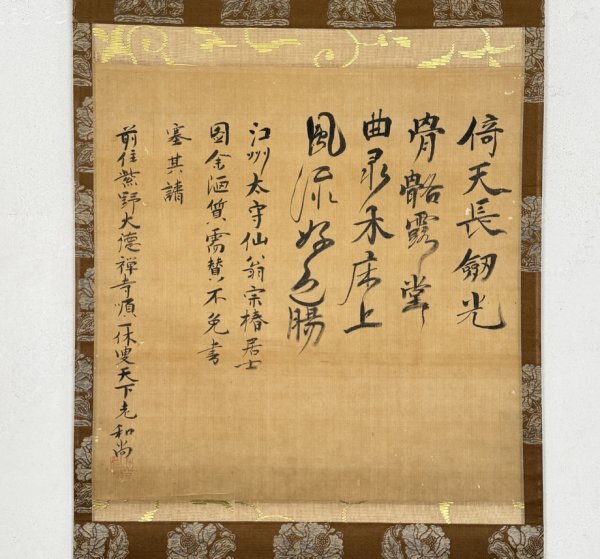 倚天長劒光
骨骼露堂々
曲彔木床上
風流好色腸
江州太守仙翁宗椿居士
図余陋質需賛不免書
塞其請
前住紫野大徳禅寺順一休叟天下老和尚